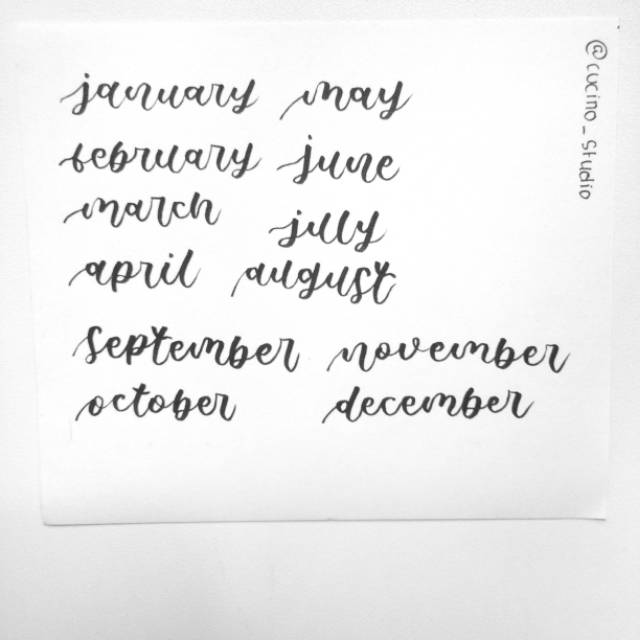 january may
february june
march july
april august
september november
october december
@cucino_studio